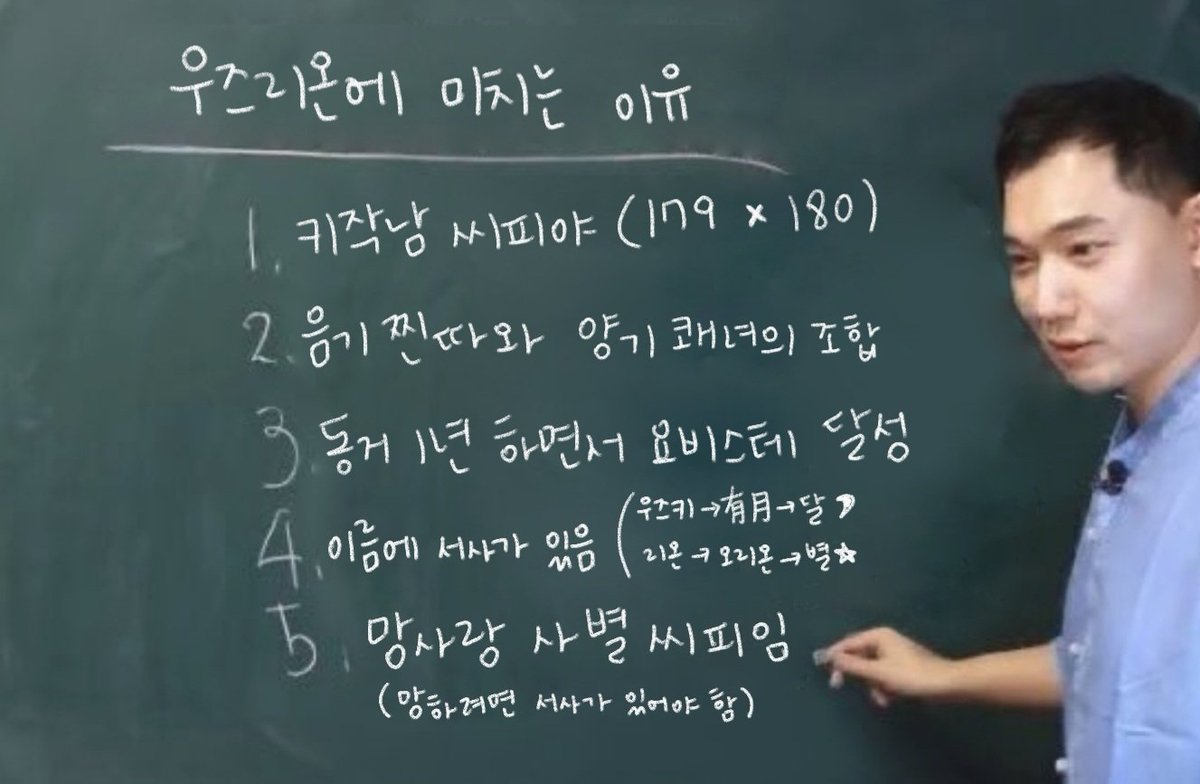 우즈리온에 미치는 이유
1. 키작남 씨피야 (179 × 180)
2. 음기 찐따와 양기 쾌녀의 조합
3. 동거 1년 하면서 요비스테 달성
4. 이름에 서사가 있음 (우즈키→有月→달
리온→오리온→별☆
5. 망사랑 사별 씨피임
(망하려면 서사가 있어야 함)